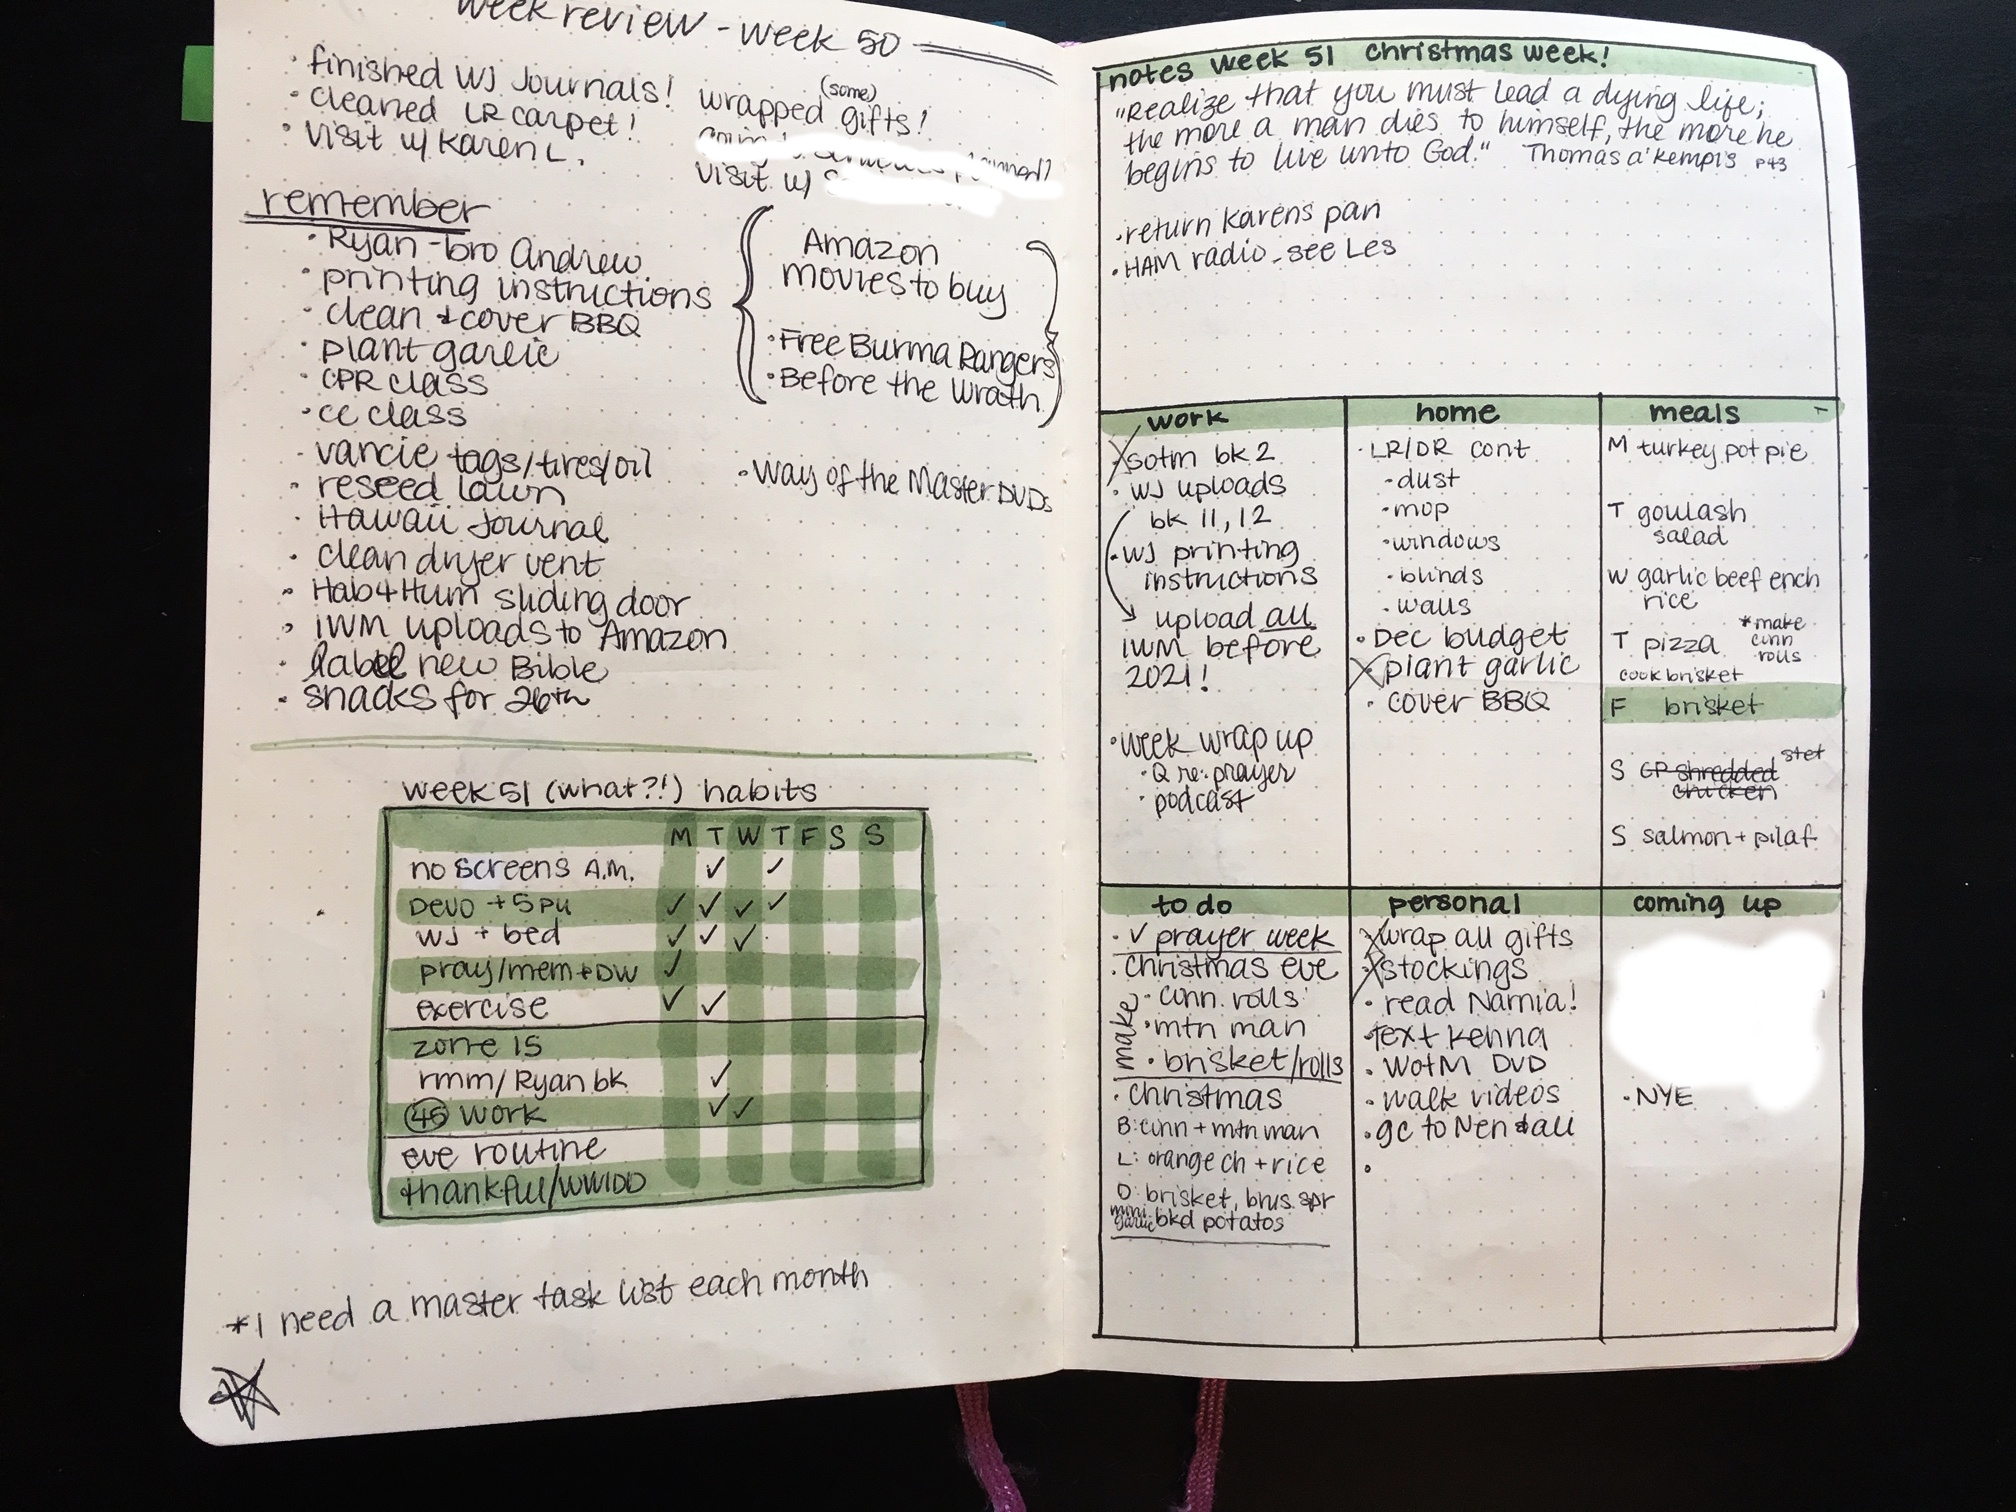 week review - week 50
· finished WJ Journals!
· cleaned LR carpet!
· visit w/ Karen L.
(some)
wrapped gifts!
visit w/
remember
· Ryan - bro Andrew
· printing instructions
· clean + cover BBQ
· plant garlic
· CPR class
· CC class
· vancie tags/tires/oil
· reseed lawn
· Hawaii Journal
· clean dryer vent
· Hab4Hum sliding door
· IWM uploads to Amazon
· label new Bible
· snacks for 26th
Amazon
movies to buy
· Free Burma Rangers
· Before the Wrath
· Way of the Master DVDs
week 51 (what?!) habits
M T W T F S S
no screens A.M. ✓ ✓
Devo + 5 pu ✓ ✓ ✓ ✓
WJ + bed ✓ ✓ ✓
pray/mem + DW ✓
exercise ✓ ✓
zone 15
rmm/Ryan bk ✓
45 work ✓ ✓
eve routine
thankful/WWIDD
*I need a master task list each month
notes week 51 christmas week!
"Realize that you must lead a dying life;
the more a man dies to himself, the more he
begins to live unto God." Thomas a' Kempis p43
· return Karens pan
· HAM radio - see Les
work
X sotm bk 2
· WJ uploads
bk 11, 12
· WJ printing
instructions
upload all
IWM before
2021!
· week wrap up
· Q re: prayer
· podcast
home
· LR/DR cont
· dust
· mop
· windows
· blinds
· walls
· Dec budget
X plant garlic
· cover BBQ
meals
M turkey pot pie
T goulash
salad
W garlic beef ench
rice
T pizza *make
cinn
rolls
cook brisket
F brisket
S CP shredded stet
chicken
S salmon + pilaf
to do
· ✓ prayer week
· christmas eve
make
· cinn. rolls
· mtn man
· brisket/rolls
· christmas
B: cinn + mtn man
L: orange ch + rice
D: brisket, brus. spr
mini garlic bkd potatos
personal
X wrap all gifts
X stockings
· read Narnia!
· text Kenna
· WotM DVD
· walk videos
· gc to Nen & all
·
coming up
· NYE